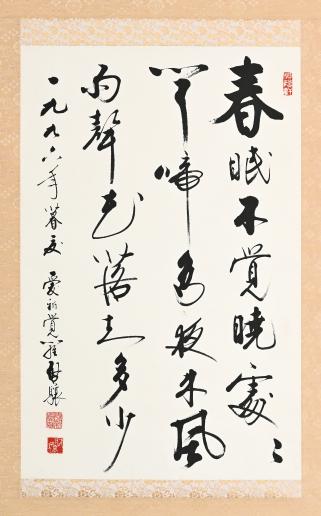 春眠不覺曉處〻
聞啼鳥夜来風
雨聲花落知多少
一九九六年暮夏 愛新覺羅啟驤